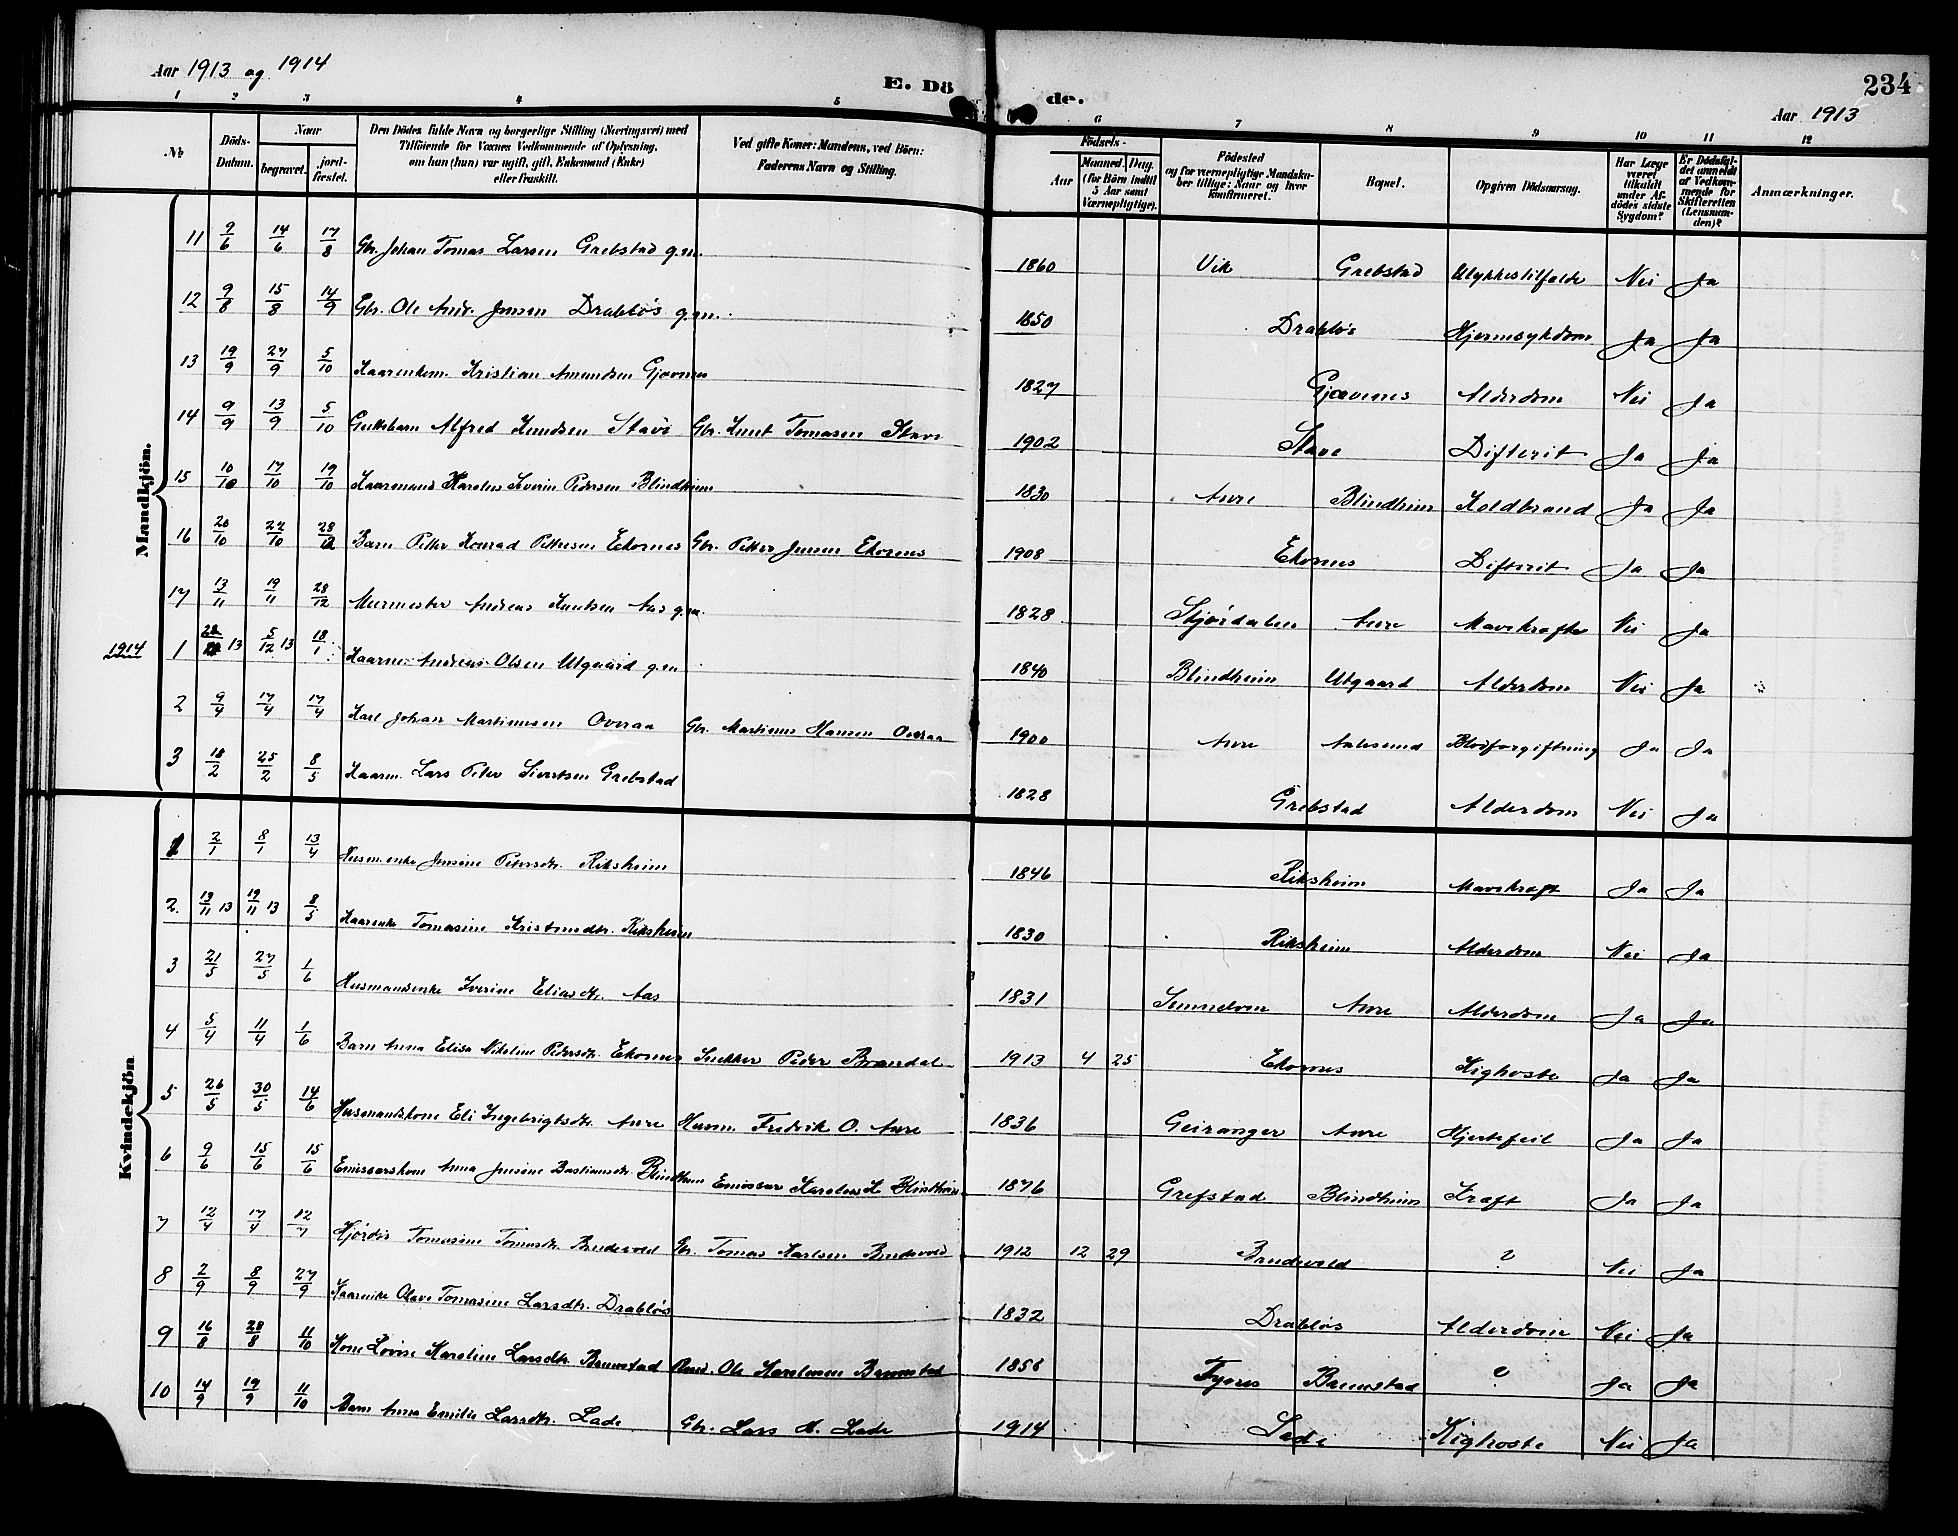 Aar 1913 og 1914 E. Dö de. 234
Aar 1913
1 2 3 4 5 6 7 8 9 10 11 12
№ Döds-Datum. Naar begravet. jord-fæstet. Den Dödes fulde Navn og borgerlige Stilling (Næringsvei) med Tilföiende for Voxnes Vedkommende af Oplysning, om han (hun) var ugift, gift, Enkemand (Enke) eller fraskilt. Ved gifte Koner: Mandens, ved Börn: Faderens Navn og Stilling. Födsels- Aar Maaned. Dag. (for Börn indtil 5 Aar samt Værnepligtige). Födested og for værnepligtige Mandska-ber tillige: Naar og hvor konfirmeret. Bopæl. Opgiven Dödsaarsag. Har Læge været tilkaldt under Af-dödes sidste Sygdom? Er Dödsfal-det anmeldt af Vedkom-mende for Skifteretten (Lensman-den)? Anmærkninger.
Mandkjön.
11 9/6 14/6 17/8 Gbr. Johan Tomas Larsen Grebstad g.m. 1860 Vik Grebstad Ulykkestilfælde Nei Ja
12 9/8 15/8 14/9 Gbr. Ole Andr. Jensen Drabløs g.m. 1850 Drabløs Hjernesykdom Ja Ja
13 19/9 27/9 5/10 Kaarenkem. Kristian Amundsen Gjævenes 1827 Gjævenes Alderdom Nei Ja
14 9/9 13/9 5/10 Guttebarn Alfred Knudsen Stave Gbr. Knut Tomasen Stave 1902 Stave Difterit Ja Ja
15 10/10 17/10 19/10 Kaarmand Karolus Severin Pedersen Blindheim 1830 Aure Blindheim Koldbrand Ja Ja
16 20/10 27/10 28/12 Barn Petter Konrad Pettersen Ekornes Gbr. Petter Jensen Ekornes 1908 Ekornes Difterit Ja Ja
17 13/11 19/11 28/12 Murmester Andreas Knutsen Aas g.m. 1828 Stjørdalen Aure Mavekræft Nei Ja
1914 1 28/11 13 5/12 13 18/1 Kaarm. Andreas Olsen Utgaard g.m. 1840 Blindheim Utgaard Alderdom Nei Ja
2 9/4 17/4 17/4 Karl Johan Martinusen Overaa Gbr. Martinus Hansen Overaa 1900 Aure Aalesund Blodforgiftning Ja Ja
3 18/2 25/2 8/5 Kaarm. Lars Peter Sivertsen Grebstad 1828 Grebstad Alderdom Nei Ja
Kvindekjön
1 2/1 8/1 13/4 Husm.enke Jensine Petersdtr. Riksheim 1846 Riksheim Mavekræft Ja Ja
2. 13/11 13 19/11 13 8/5 Kaarenke Tomasine Kristensdtr. Riksheim 1830 Riksheim Alderdom Nei Ja
3 21/5 27/5 1/6 Husmandsenke Iverine Eliasdtr. Aas 1831 Sunnelven Aure Alderdom Ja Ja
4 5/4 11/4 1/6 Barn Anna Elisa Nikoline Pedersdtr. Ekornes Snekker Peder Brandal 1913 4 25 Ekornes Kighoste Ja Ja
5 26/5 30/5 14/6 Husmandskone Eli Ingebrigtsdtr. Aure Husm. Fredrik O. Aure 1836 Geiranger Aure Hjertefeil Ja Ja
6 9/6 15/6 15/6 Emissærskone Anna Jensine Bastiansdtr. Blindheim Emissær Karolus K. Blindheim 1876 Grefstad Blindheim Kræft Ja Ja
7 12/4 17/4 12/7 Hjørdis Tomasine Tomasdtr. Brudevold Gbr. Tomas Karlsen Brudevold 1912 12 29 Brudevold ? Nei Ja
8 2/9 8/9 27/9 Kaarenke Olave Tomasine Larsdtr. Drabløs 1832 Drabløs Alderdom Nei Ja
9 16/8 28/8 11/10 Kone Lovise Karoline Larsdtr. Brunstad Ole Karolusen Brunstad 1858 Brunstad ? Ja Ja
10 14/9 19/9 11/10 Barn Anna Emilie Larsdtr. Lade Gbr. Lars A. Lade 1914 Lade Kighoste Nei Ja